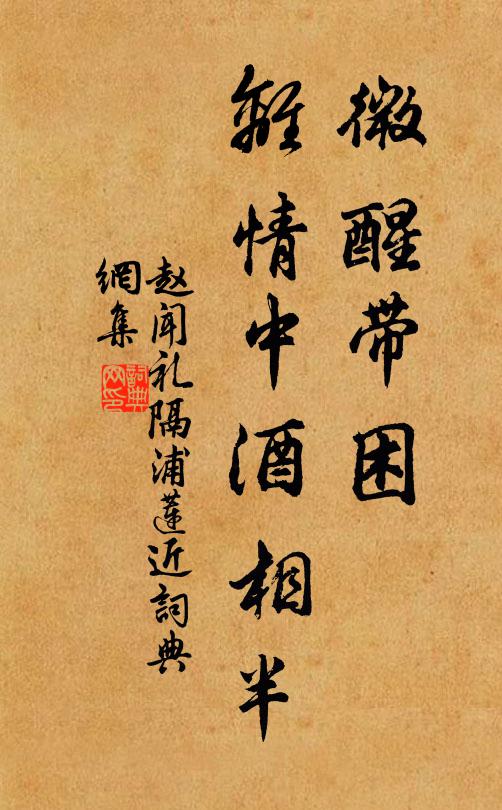 微醒带困
離情中酒相半
赵闻礼隔浦莲近詞典
網集
詞典網印